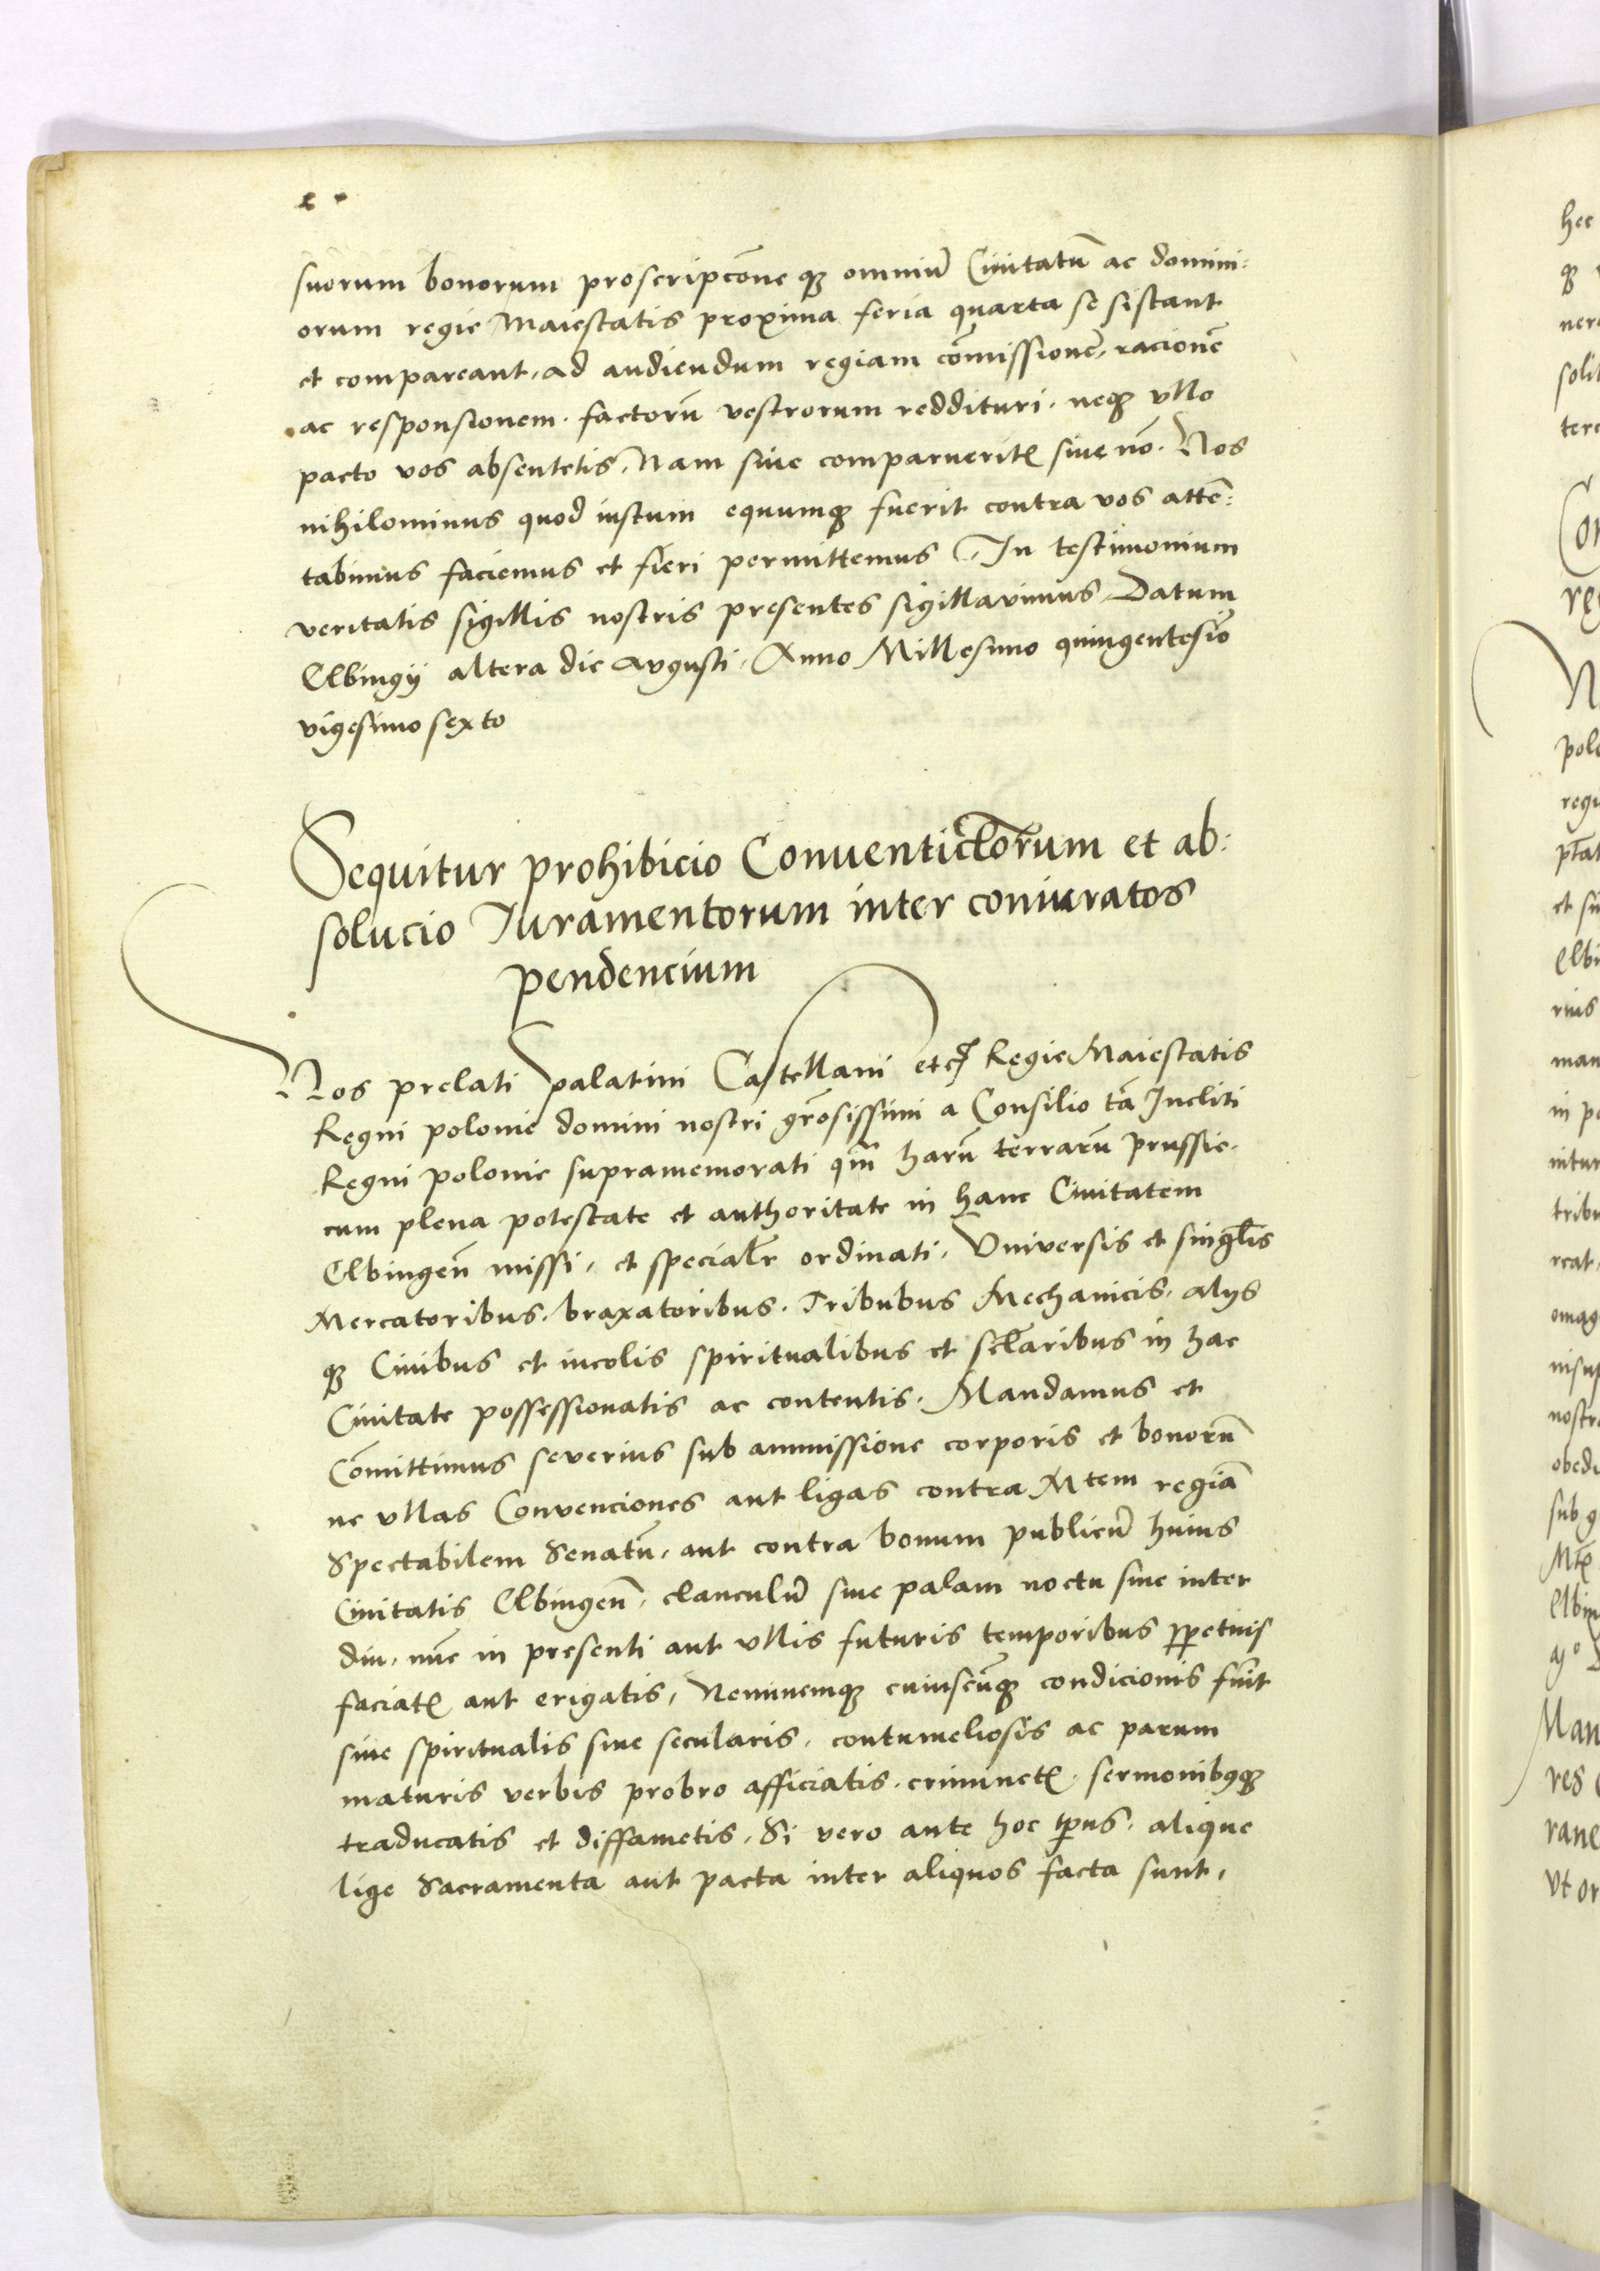 suorum bonorum proscripcōne qȝ omniū Ciuitatū ac domini:
orum regie Maiestatis proxima feria quarta se sistant
et compareant, ad audiendum regiam cōmissionē, racionē
ac responsionem. factorū vestrorum reddituri. neqȝ vllo
pacto vos absentetis, Nam siue comparueritꝭ siue nō. Nos
nihilominus quod iustum equumqȝ fuerit contra vos attē:
tabimus faciemus et fieri permittemus. In testimonium
veritatis sigillis nostris presentes sigillauimus. Datum
Elbingij altera die Augusti. Anno Millesimo quingentesīo
vigesimo sexto
Sequitur prohibicio Conuenticlōrum et ab:
solucio Iuramentorum inter coniuratos
pendencium
Nos prelati palatini Castellani etcꝫ Regie Maiestatis
Regni polonie domini nostri gr̄osissimi a Consilio tā Incliti
Regni polonie supramemorati qm̄ harū terrarū prussie.
cum plena potestate et authoritate in hanc Ciuitatem
Elbingeñ missi, et specialr̄ ordinati, Vniuersis et singl̄is
Mercatoribus. braxatoribus. Tribubus Mechanicis, alijs
qȝ Ciuibus et incolis spiritualibus et scl̄aribus in hac
Ciuitate possessionatis ac contentis. Mandamus et
Cōmittimus seuerius sub ammissione corporis et bonorū
ne vllas Conuenciones aut ligas contra Mtem regiā
Spectabilem Senatū, aut contra bonum publicū huius
Ciuitatis Elbingeñ, clanculū siue palam noctu siue inter
diu, nūc in presenti aut vllis futuris temporibus ꝑpetuis
faciatꝭ aut erigatis, Neminemqȝ cuiuscūqȝ condicionis fūit
siue spiritualis siue secularis, contumeliosis ac parum
maturis verbis probro afficiatis. criminetꝭ. sermonibꝰqȝ
traducatis et diffametis. Si vero ante hoc tp̄us. alique
lige Sacramenta aut pacta inter aliquos facta sunt,